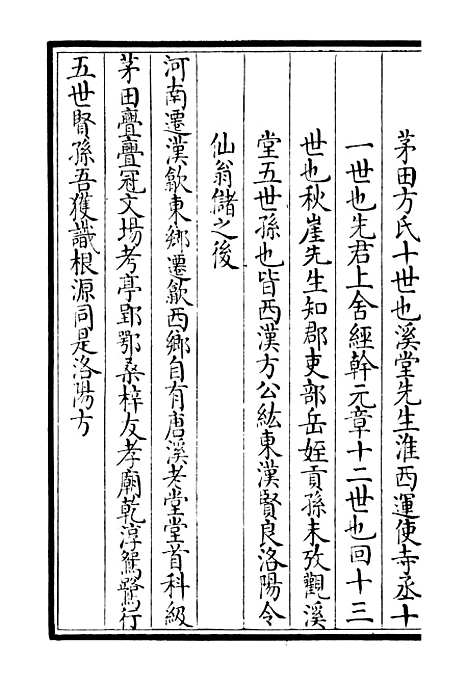 茅田方氏十世也溪堂先生淮西運使寺丞十
一世也先君上舍經幹元章十二世也回十三
世也秋崖先生知郡吏部岳姪貢孫末攷觀溪
堂五世孫也皆西漢方公紘東漢賢良洛陽令
仙翁儲之後
河南遷漢歙東鄉遷歙西鄉自有唐溪老堂堂首科級
茅田亹亹冠文場考亭郢鄂桑梓友孝廟乾淳鴛鷺行
五世賢孫吾獲識根源同是洛陽方